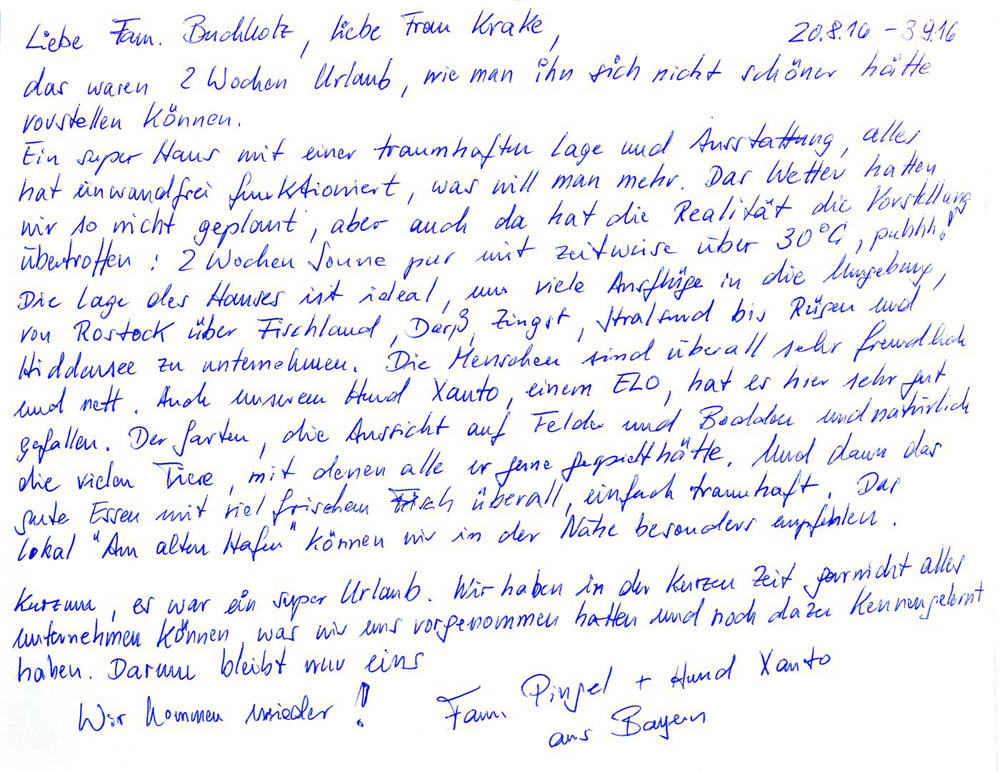 Liebe Fam. Buchholz, liebe Frau Krake, 20.8.16 - 3.9.16
das waren 2 Wochen Urlaub, wie man ihn sich nicht schöner hätte
vorstellen können.
Ein super Haus mit einer traumhaften Lage und Ausstattung, alles
hat einwandfrei funktioniert, was will man mehr. Das Wetter hatten
wir so nicht geplant, aber auch da hat die Realität die Vorstellung
übertroffen: 2 Wochen Sonne pur mit zeitweise über 30°C, puhhh!
Die Lage des Hauses ist ideal, um viele Ausflüge in die Umgebung,
von Rostock über Fischland, Darß, Zingst, Stralsund bis Rügen und
Hiddensee zu unternehmen. Die Menschen sind überall sehr freundlich
und nett. Auch unserem Hund Xanto, einem ELO, hat es hier sehr gut
gefallen. Der Garten, die Aussicht auf Felder und Bodden und natürlich
die vielen Tiere, mit denen alle er gerne gespielt hätte. Und dann das
gute Essen mit viel frischem Fisch überall, einfach traumhaft. Das
Lokal "Am alten Hafen" können wir in der Nähe besonders empfehlen.
Kurzum, es war ein super Urlaub. Wir haben in der kurzen Zeit garnicht alles
unternehmen können, was wir uns vorgenommen hatten und noch dazu kennengelernt
haben. Darum bleibt nur eins
Wir kommen wieder! Fam. Pingel + Hund Xanto
aus Bayern